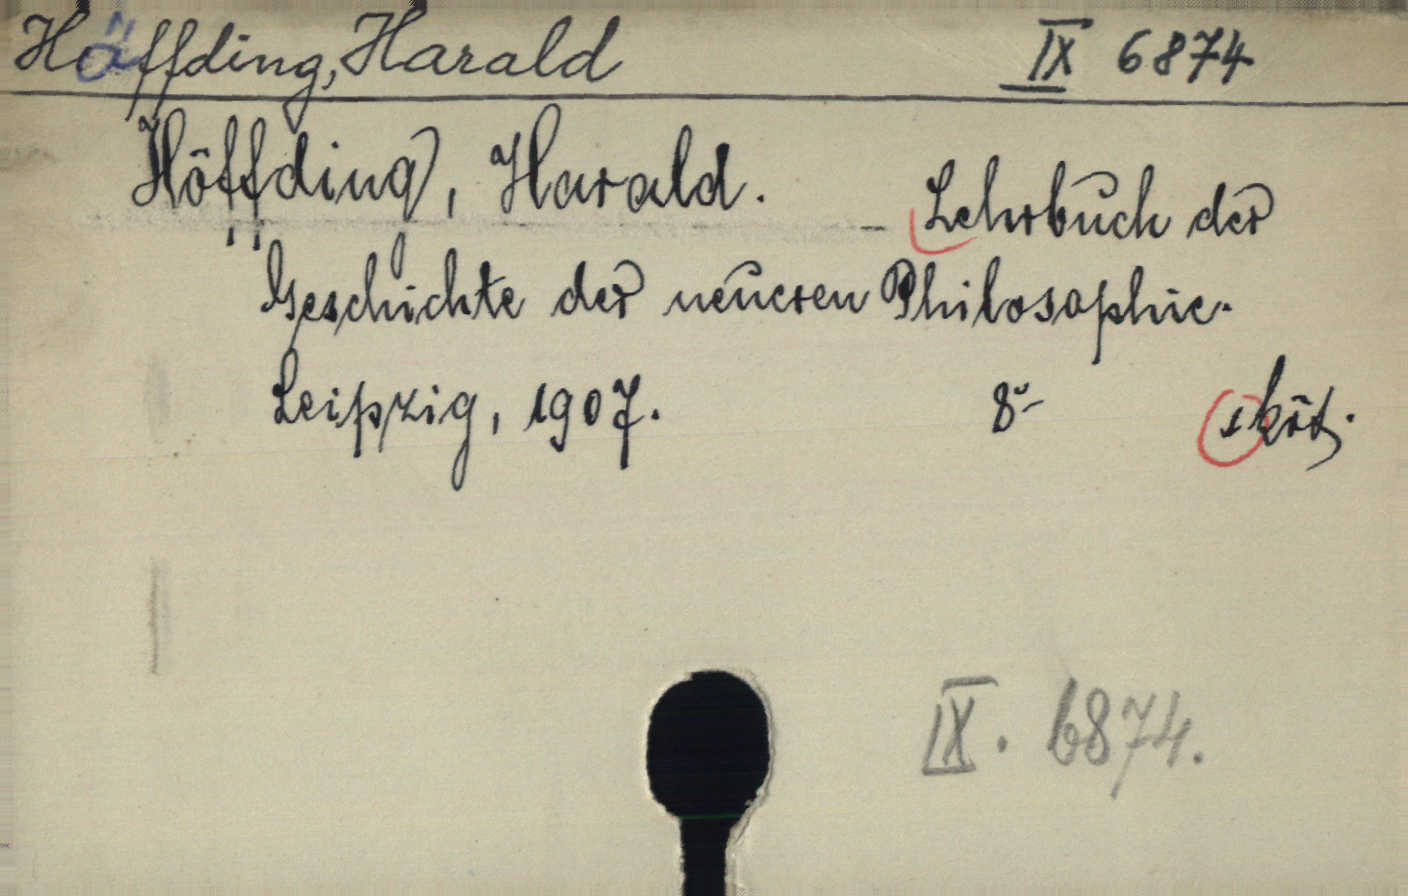 Höffding, Harald IX 6874
Höffding, Harald.
– Lehrbuch der
Geschichte der neueren Philosophie.
Leipzig, 1907. 8° 1 köt.
IX. 6874.